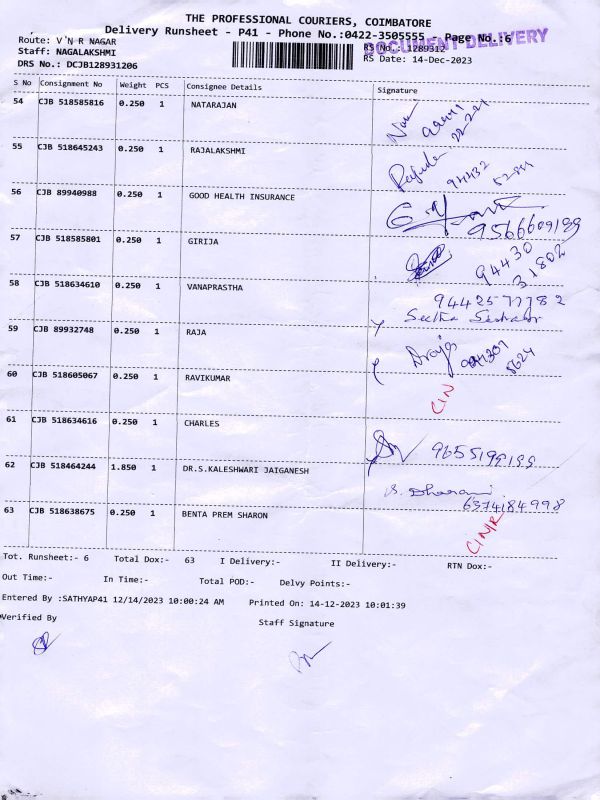 THE PROFESSIONAL COURIERS, COIMBATORE
Delivery Runsheet - P41 - Phone No.:0422-3505555 - Page No.:6
DOCUMENT DELIVERY
Route: V'N R NAGAR
RS No.: 1289312
Staff: NAGALAKSHMI
RS Date: 14-Dec-2023
DRS No.: DCJB128931206
S No Consignment No Weight PCS Consignee Details Signature
54 CJB 518585816 0.250 1 NATARAJAN
55 CJB 518645243 0.250 1 RAJALAKSHMI
94432
56 CJB 89940988 0.250 1 GOOD HEALTH INSURANCE
9566609189
57 CJB 518585801 0.250 1 GIRIJA
94430
31802
58 CJB 518634610 0.250 1 VANAPRASTHA
9442577782
59 CJB 89932748 0.250 1 RAJA
60 CJB 518605067 0.250 1 RAVIKUMAR
C/N
61 CJB 518634616 0.250 1 CHARLES
9655199199
62 CJB 518464244 1.850 1 DR.S.KALESHWARI JAIGANESH
S. Dharani
6374184998
63 CJB 518638675 0.250 1 BENTA PREM SHARON
C/N/R
Tot. Runsheet:- 6 Total Dox:- 63 I Delivery:- II Delivery:- RTN Dox:-
Out Time:- In Time:- Total POD:- Delvy Points:-
Entered By :SATHYAP41 12/14/2023 10:00:24 AM Printed On: 14-12-2023 10:01:39
Verified By Staff Signature